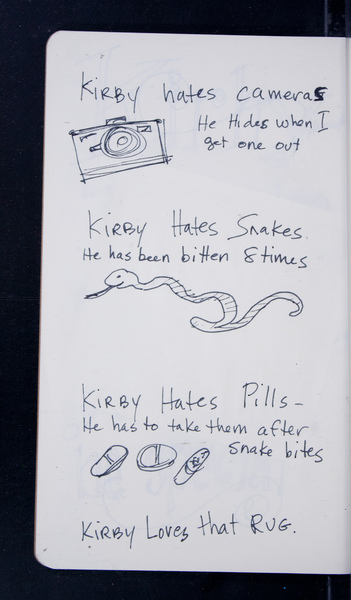 KIRBY hates cameras
He Hides when I
get one out
KIRBY Hates Snakes
He has been bitten 8 times
KIRBY Hates Pills-
He has to take them after
snake bites
KIRBY Loves that RUG.